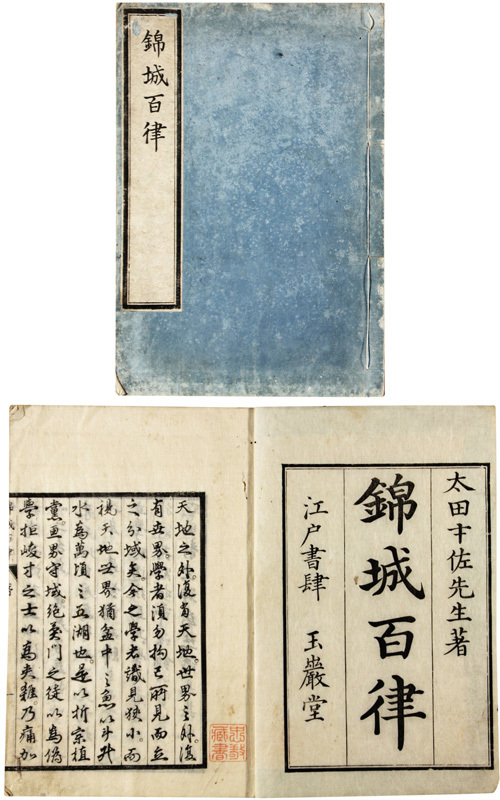 錦城百律
太田才佐先生著
錦城百律
江戶書肆 玉巖堂
天地之外。復有天地。世界之外。復
有世界。學者須勿拘己所見而立
之分域矣。今之學者識見狹小。而
視天地世界猶盆中之魚以斗升
水爲萬頃之五湖也。是以折宗植
黨。畫界守城絶異門之徒以爲僞
學拒峻才之士以爲夾雜。乃痛加
藏書